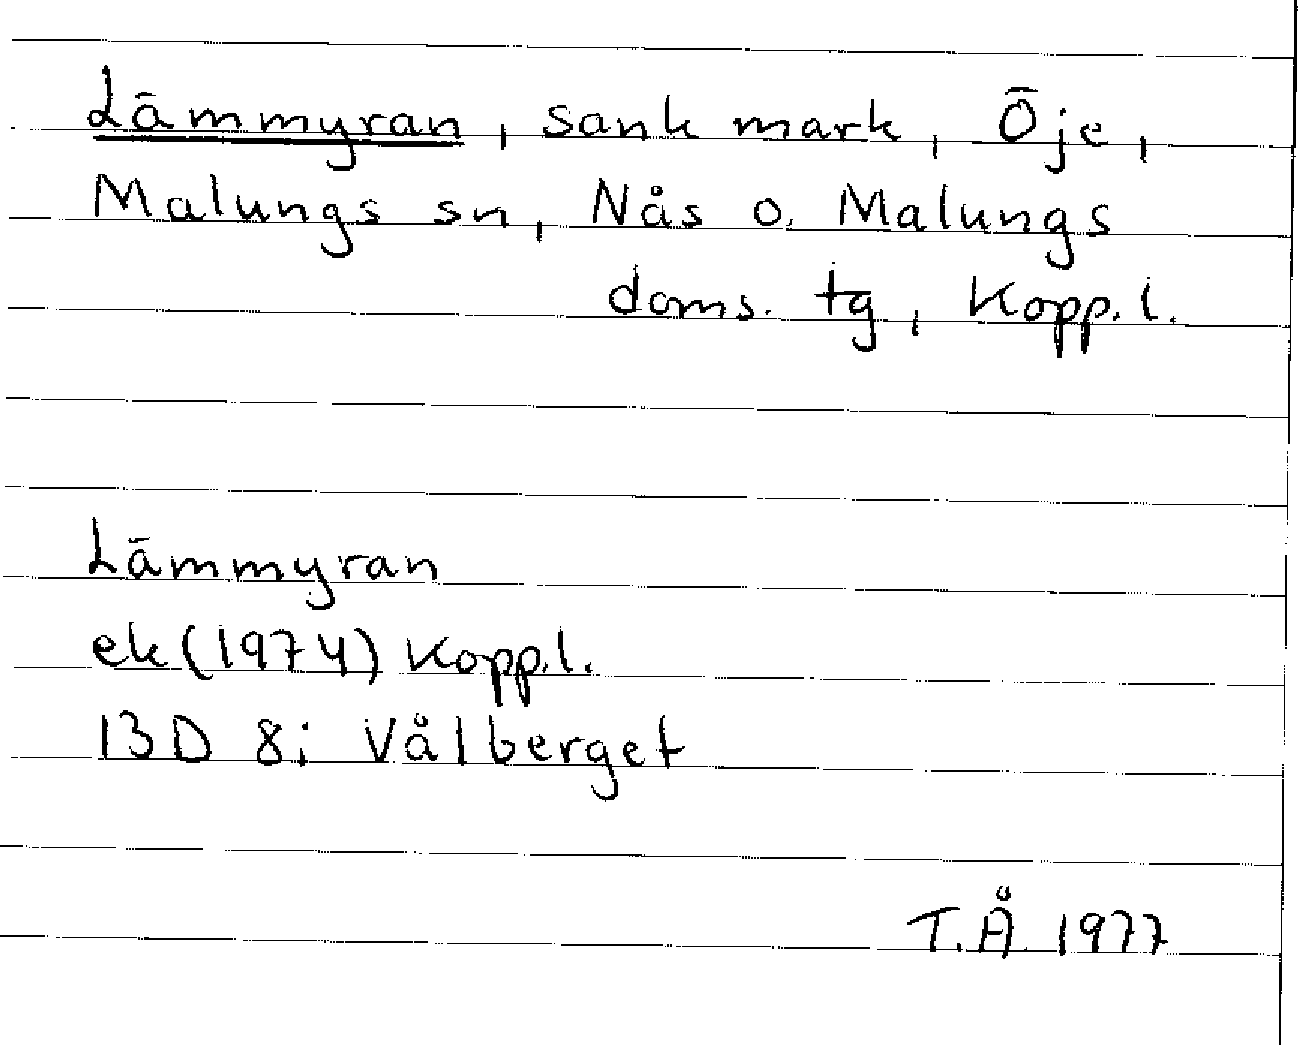 Lämmyran, sank mark, Öje,
Malungs sn, Nås o. Malungs
doms. tg, Kopp. l.
Lämmyran
ek (1974) Kopp.l.
13D 8i Vålberget
T.Å. 1977